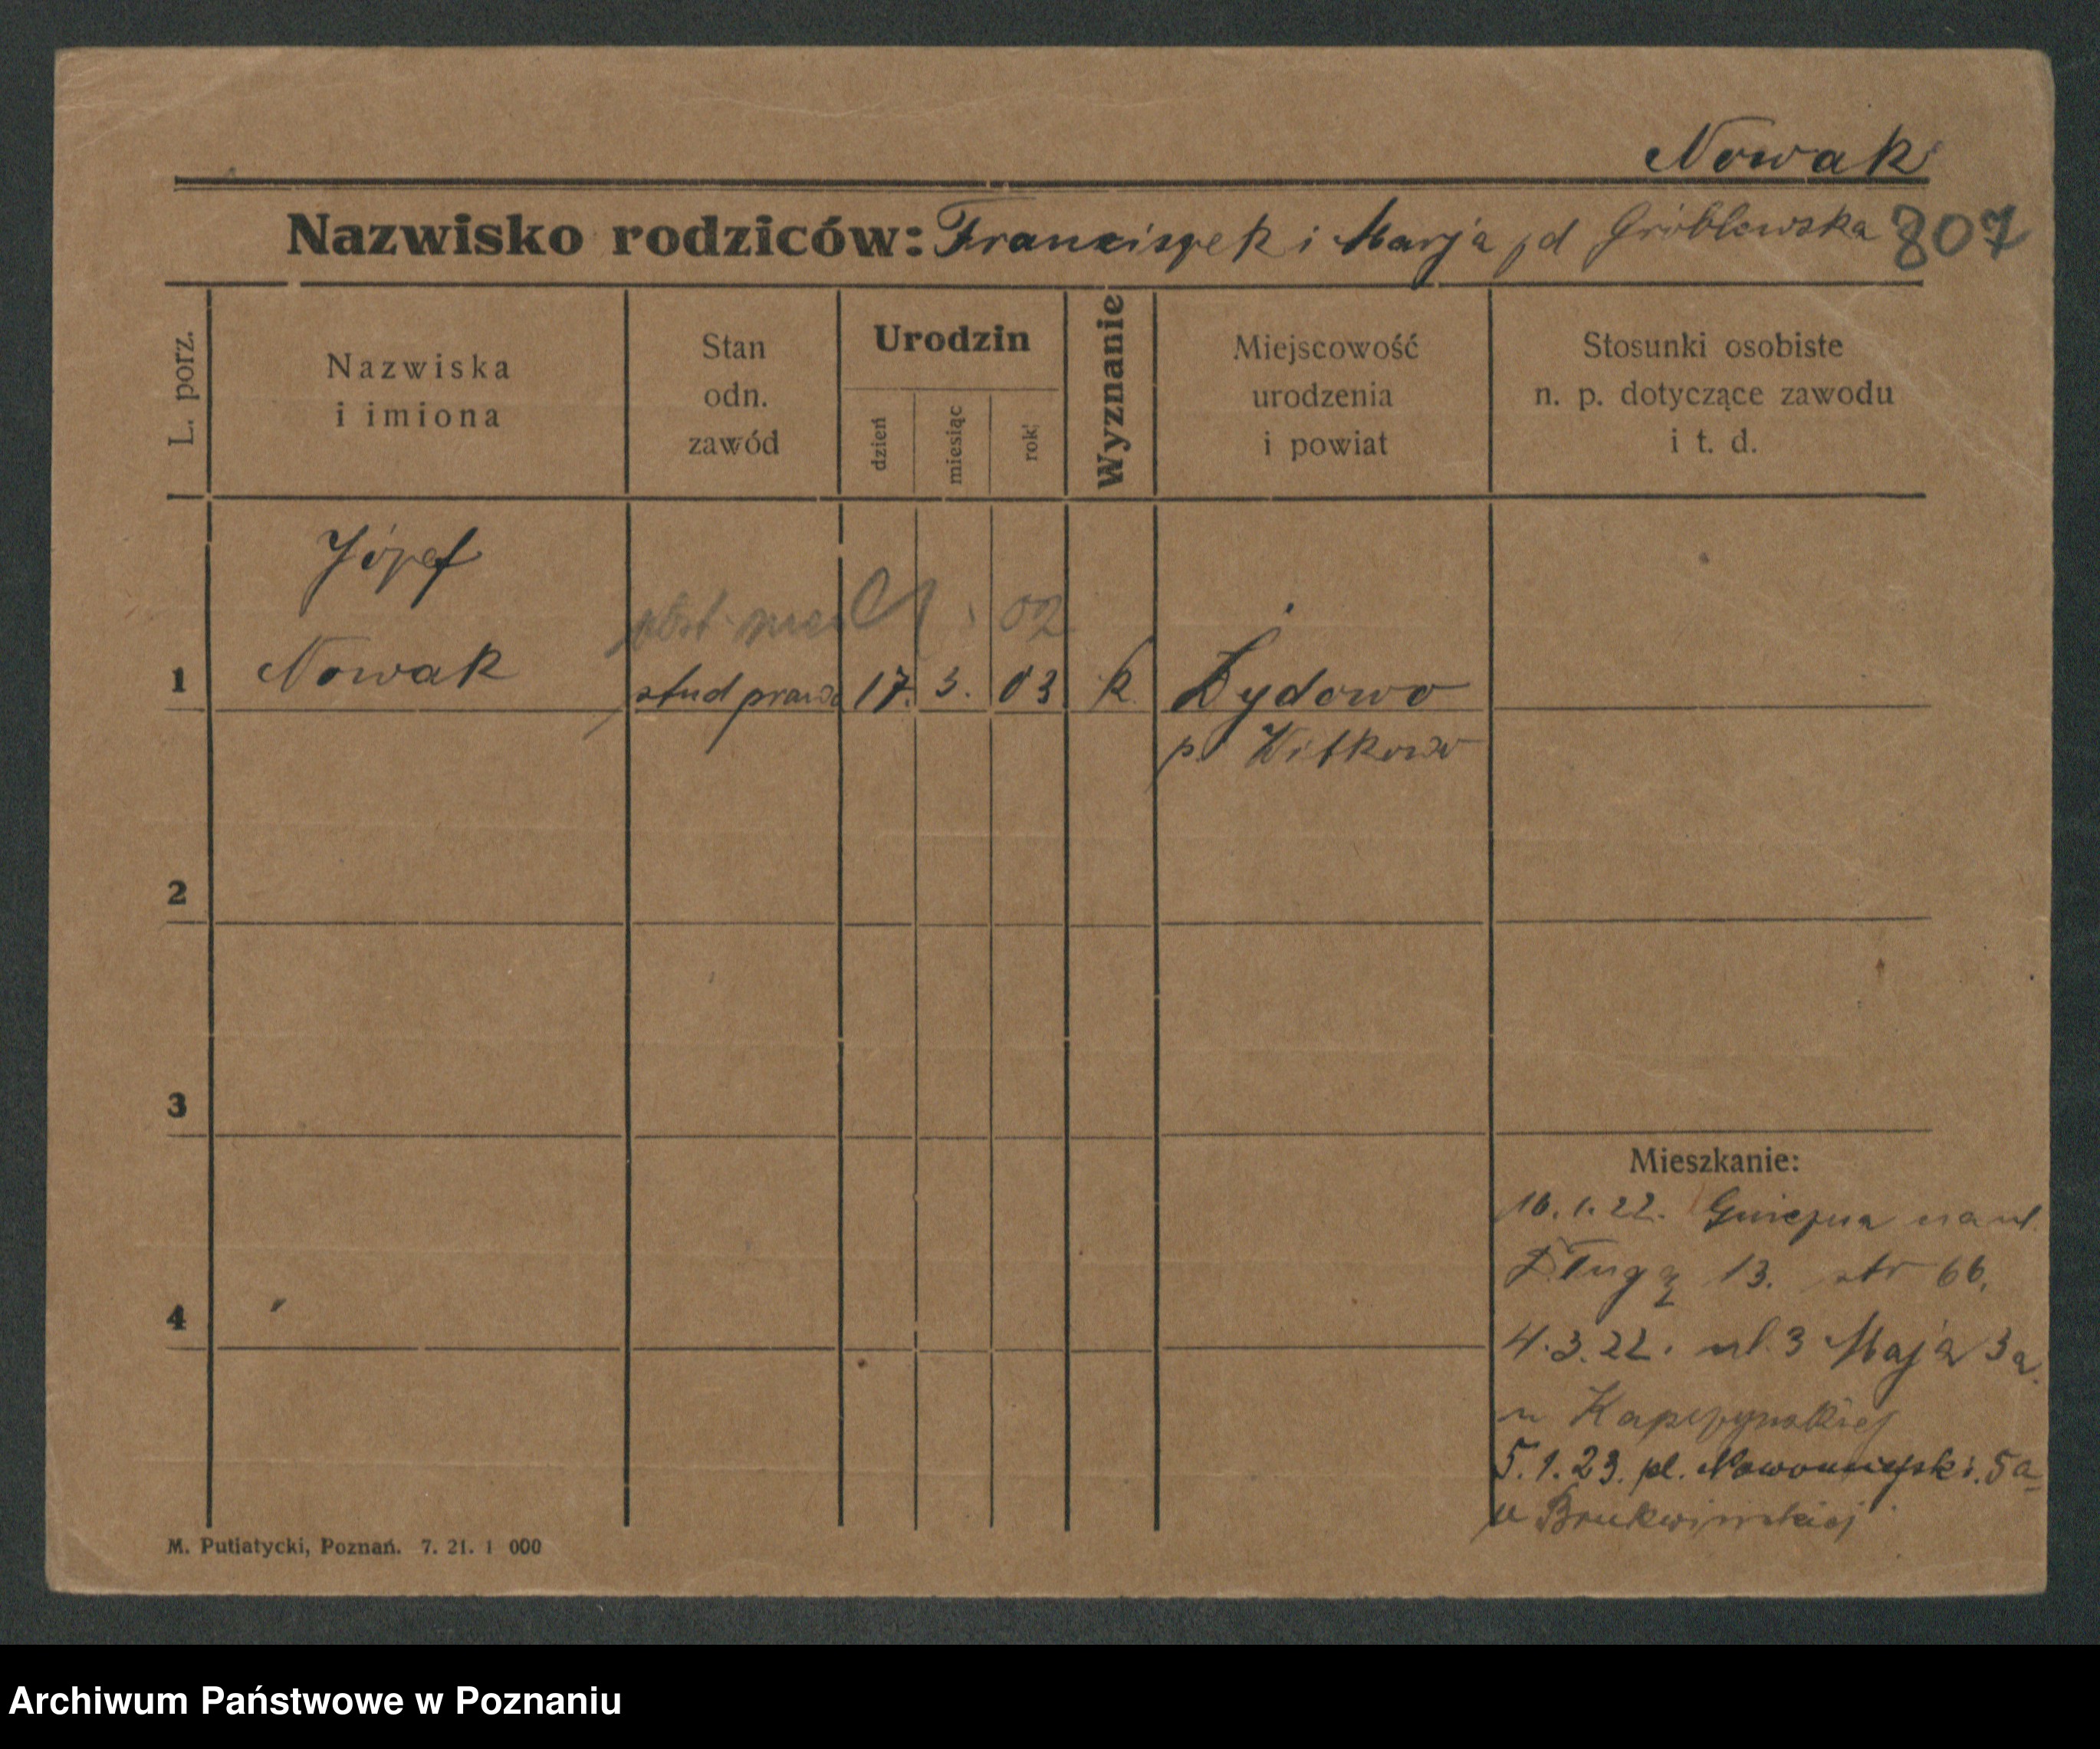 Nowak
Nazwisko rodziców: Franciszek i Marja pd Gróblewska 807
L. porz.
Nazwiska
i imiona
Stan
odn.
zawód
Urodzin
dzień
miesiąc
rok
Wyznanie
Miejscowość
urodzenia
i powiat
Stosunki osobiste
n. p. dotyczące zawodu
i t. d.
Józef
02
1 Nowak stud prawa 17. 3. 03 k Żydowo
p. Witkowo
2
3
Mieszkanie:
16.1.22. Gniezna na ul.
Długą 13. str 66.
4
4.3.22. ul. 3 Maja 3a.
u Kapczyńskiej
5.1.23. pl. Nowomiejski. 5a
u Brukwińskiej
M. Putiatycki, Poznań. 7. 21. 1 000
Archiwum Państwowe w Poznaniu